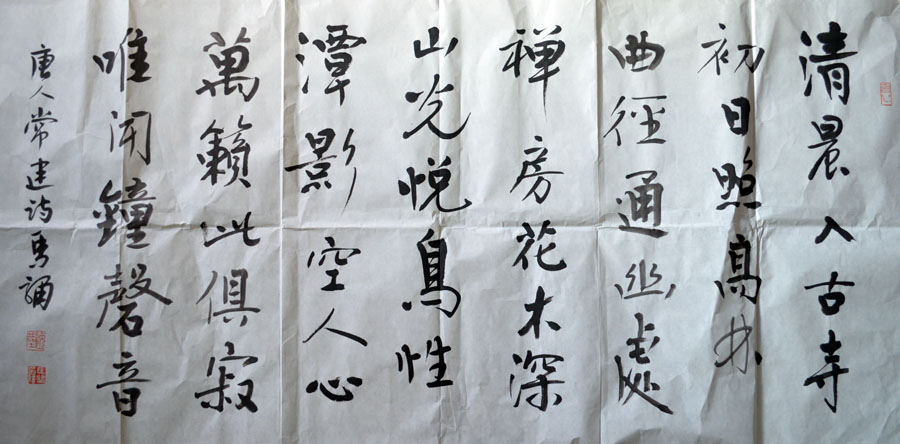 清晨入古寺
初日照高林
曲徑通幽處
禅房花木深
山光悦鳥性
潭影空人心
萬籟此俱寂
唯闻鐘磬音
唐人常建诗